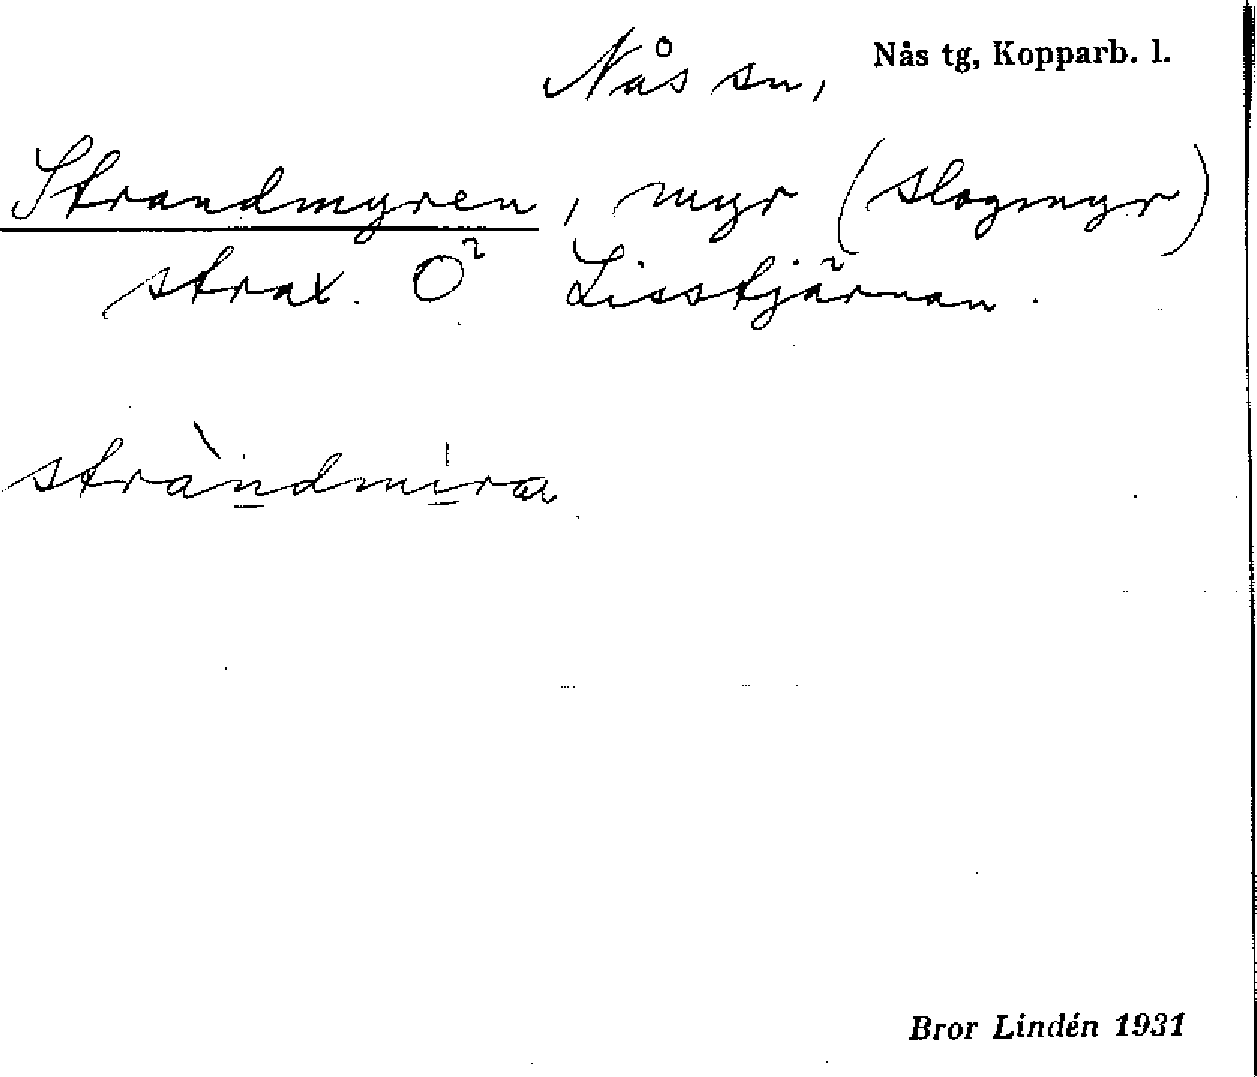 Nås sn, Nås tg, Kopparb. l.
Strandmyren, myr (slogmyr)
strax. Ö Lisstjärnan.
stràndmira
Bror Lindén 1931